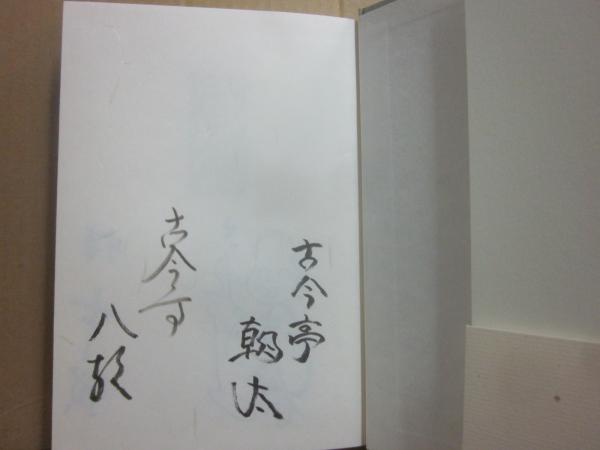 古今亭
朝太
古今亭
八朝